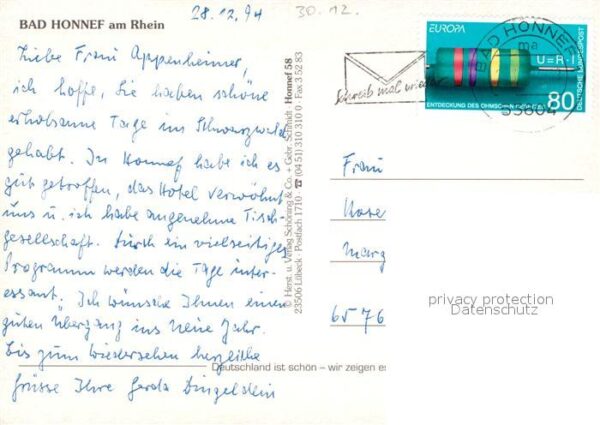 BAD HONNEF am Rhein
28.12.94
30.12.
Liebe Frau Appenheimer,
ich hoffe, Sie haben schöne
erholsame Tage im Schwarzwald
gehabt. In Honnef habe ich es
gut getroffen, das Hotel verwöhnt
uns u. ich habe angenehme Tisch-
gesellschaft. Durch ein vielseitiges
Programm werden die Tage inter-
essant. Ich wünsche Ihnen einen
guten Übergang ins Neue Jahr.
Bis zum Wiedersehen herzliche
Grüsse Ihre Gerda Dingeldein
Deutschland ist schön – wir zeigen es
© Herst. u. Verlag Schöning & Co. + Gebr. Schmidt Honnef 58
23506 Lübeck · Postfach 1710 · ☎ (04 51) 310 310 0 · Fax 3 52 83
schreib mal wieder
EUROPA
BAD HONNEF
ma
53604
U=R·I
DEUTSCHE BUNDESPOST
ENTDECKUNG DES OHMSCHEN GESETZES
80
Frau
Rose
Marg
6576
privacy protection
Datenschutz